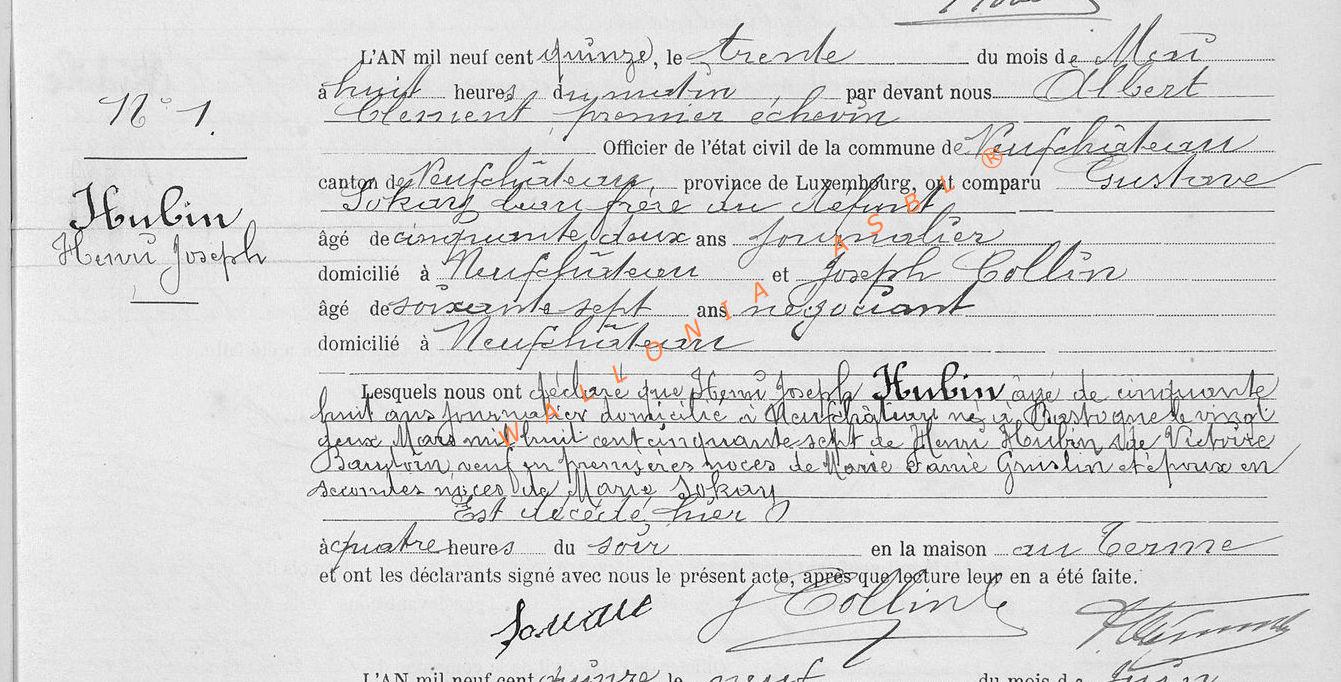 L'AN mil neuf cent quinze, le trente du mois de Mai
à huit heures du matin par devant nous Albert
Clement, premier échevin
Officier de l'état civil de la commune de Neufchâteau
canton de Neufchâteau, province de Luxembourg, ont comparu Gustave
Sokay beau frère au défunt
âgé de cinquante deux ans journalier
domicilié à Neufchâteau et Joseph Collin
âgé de soixante sept ans négociant
domicilié à Neufchâteau
Lesquels nous ont déclaré que Henri Joseph Hubin âgé de cinquante
huit ans journalier domicilié à Neufchâteau né à Bastogne le vingt
deux Mars mil huit cent cinquante sept de Henri Hubin et de Victoire
veuf en premières noces de Marie et époux en
secondes noces de Marie Sokay
Est décédé hier
à quatre heures du soir en la maison au Terme
et ont les déclarants signé avec nous le présent acte, après que lecture leur en a été faite.
J Collin
L'AN mil neuf cent quinze le neuf du mois de Juin
N° 1.
Hubin
Henri Joseph
WALLONIA ASBL ®